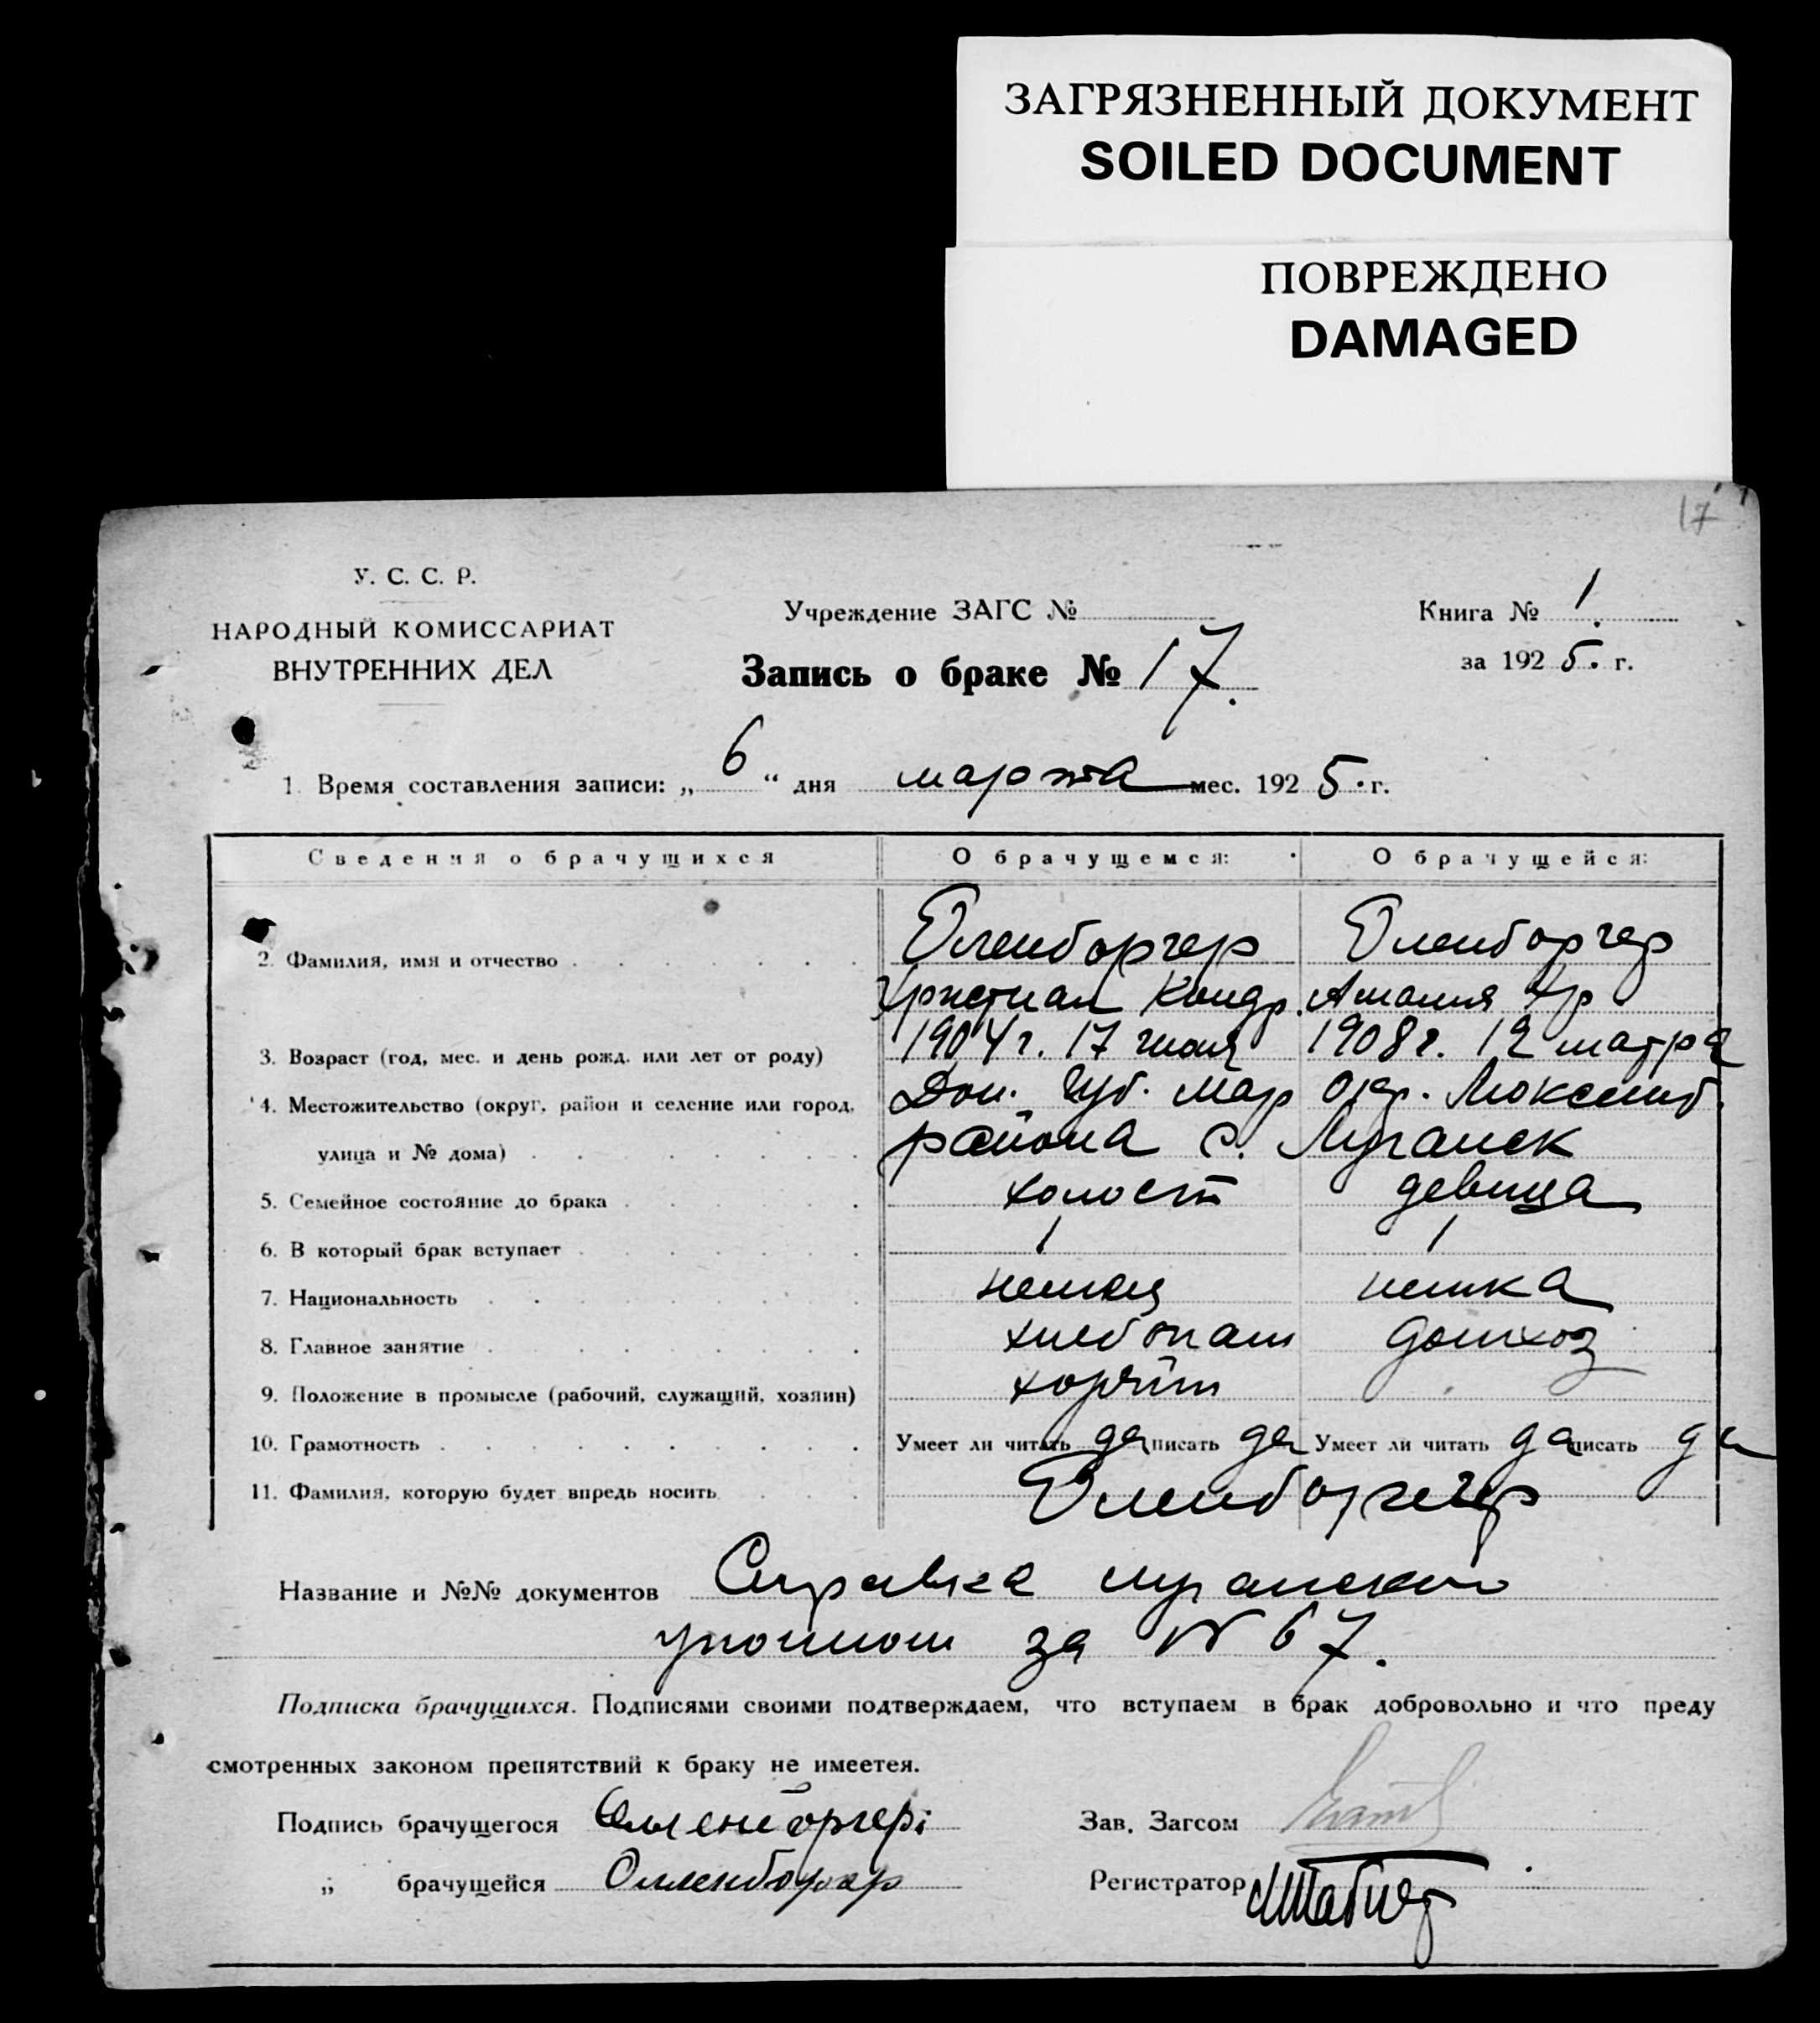 ЗАГРЯЗНЕННЫЙ ДОКУМЕНТ
SOILED DOCUMENT
ПОВРЕЖДЕНО
DAMAGED
17
У. С. С. Р.
НАРОДНЫЙ КОМИССАРИАТ
ВНУТРЕННИХ ДЕЛ
Учреждение ЗАГС №
Запись о браке № 17.
Книга № 1.
за 1925. г.
1. Время составления записи: „ 6 “ дня марта мес. 1925. г.
Сведения о брачущихся О брачущемся: О брачущейся:
2. Фамилия, имя и отчество Оленборгер Оленборгер
Христиан Конд. Амалия Хр
3. Возраст (год, мес. и день рожд. или лет от роду) 1904 г. 17 июля 1908 г. 12 марта
4. Местожительство (округ, район и селение или город, Дон. губ. Мар окр. Люксемб.
улица и № дома) района с. Луганск
5. Семейное состояние до брака холост девица
6. В который брак вступает 1 1
7. Национальность немец немка
8. Главное занятие хлебопаш домхоз
9. Положение в промысле (рабочий, служащий, хозяин)
10. Грамотность Умеет ли читать да писать да Умеет ли читать да писать да
11. Фамилия, которую будет впредь носить Оленборгер
Название и №№ документов Справка луганского
за № 67.
Подписка брачущихся. Подписями своими подтверждаем, что вступаем в брак добровольно и что преду
смотренных законом препятствий к браку не имеетея.
Подпись брачущегося
Зав. Загсом
„ брачущейся Олленборгер
Регистратор